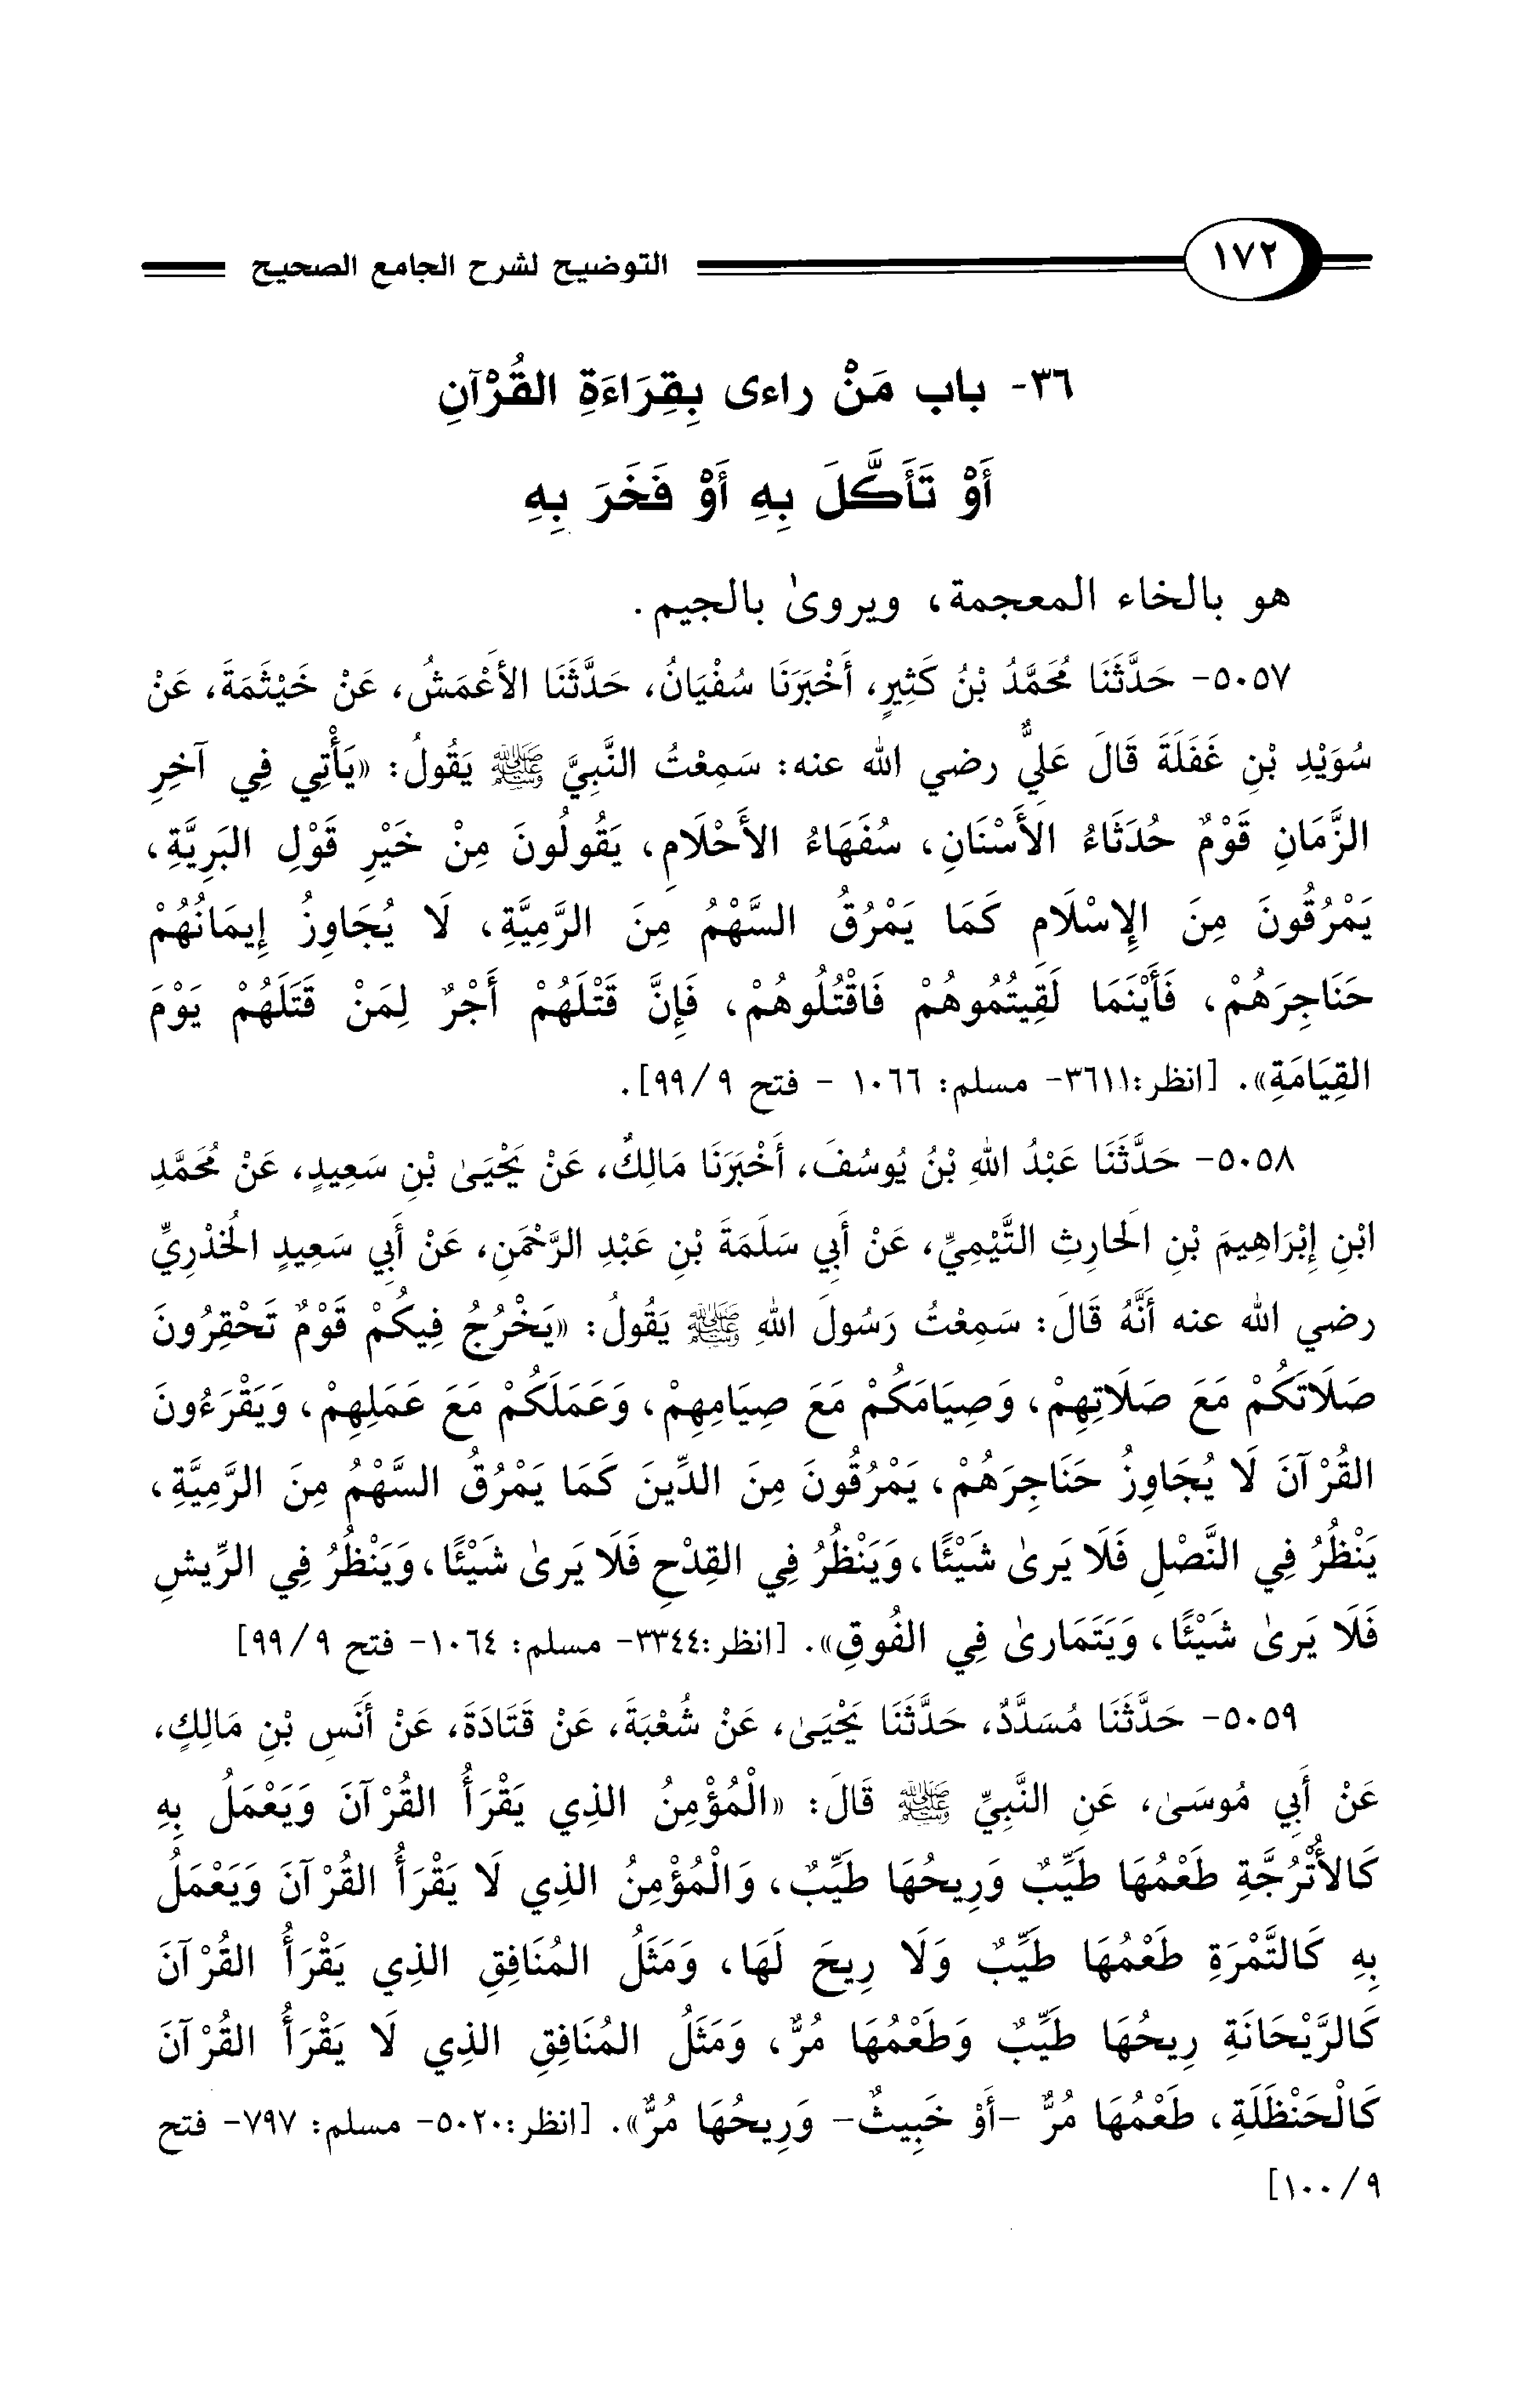 ١٧٢ التوضيح لشرح الجامع الصحيح
٣٦- باب مَنْ راءى بِقِرَاءَةِ القُرْآنِ
أَوْ تَأَكَّلَ بِهِ أَوْ فَخَرَ بِهِ
هو بالخاء المعجمة، ويروىٰ بالجيم.
٥٠٥٧- حَدَّثَنَا مُحَمَّدُ بْنُ كَثِيرٍ، أَخْبَرَنَا سُفْيَانُ، حَدَّثَنَا الأَعْمَشُ، عَنْ خَيْثَمَةَ، عَنْ
سُوَيْدِ بْنِ غَفَلَةَ قَالَ عَلِيٌّ رضي الله عنه: سَمِعْتُ النَّبِيَّ ﷺ يَقُولُ: «يَأْتِي فِي آخِرِ
الزَّمَانِ قَوْمٌ حُدَثَاءُ الأَسْنَانِ، سُفَهَاءُ الأَحْلَامِ، يَقُولُونَ مِنْ خَيْرِ قَوْلِ البَرِيَّةِ،
يَمْرُقُونَ مِنَ الإِسْلَامِ كَمَا يَمْرُقُ السَّهْمُ مِنَ الرَّمِيَّةِ، لَا يُجَاوِزُ إِيمَانُهُمْ
حَنَاجِرَهُمْ، فَأَيْنَمَا لَقِيتُمُوهُمْ فَاقْتُلُوهُمْ، فَإِنَّ قَتْلَهُمْ أَجْرٌ لِمَنْ قَتَلَهُمْ يَوْمَ
القِيَامَةِ». [انظر:٣٦١١- مسلم: ١٠٦٦ - فتح ٩/ ٩٩].
٥٠٥٨- حَدَّثَنَا عَبْدُ اللهِ بْنُ يُوسُفَ، أَخْبَرَنَا مَالِكٌ، عَنْ يَحْيَىٰ بْنِ سَعِيدٍ، عَنْ مُحَمَّدِ
ابْنِ إِبْرَاهِيمَ بْنِ الحَارِثِ التَّيْمِيِّ، عَنْ أَبِي سَلَمَةَ بْنِ عَبْدِ الرَّحْمَنِ، عَنْ أَبِي سَعِيدٍ الخُذْرِيِّ
رضي الله عنه أَنَّهُ قَالَ: سَمِعْتُ رَسُولَ اللهِ ﷺ يَقُولُ: «يَخْرُجُ فِيكُمْ قَوْمٌ تَحْقِرُونَ
صَلَاتَكُمْ مَعَ صَلَاتِهِمْ، وَصِيَامَكُمْ مَعَ صِيَامِهِمْ، وَعَمَلَكُمْ مَعَ عَمَلِهِمْ، وَيَقْرَءُونَ
القُرْآنَ لَا يُجَاوِزُ حَنَاجِرَهُمْ، يَمْرُقُونَ مِنَ الدِّينَ كَمَا يَمْرُقُ السَّهْمُ مِنَ الرَّمِيَّةِ،
يَنْظُرُ فِي النَّصْلِ فَلَا يَرىٰ شَيْئًا، وَيَنْظُرُ فِي القِدْحِ فَلَا يَرىٰ شَيْئًا، وَيَنْظُرُ فِي الرِّيشِ
فَلَا يَرىٰ شَيْئًا، وَيَتَمَارىٰ فِي الفُوقِ». [انظر:٣٣٤٤- مسلم: ١٠٦٤- فتح ٩/ ٩٩]
٥٠٥٩- حَدَّثَنَا مُسَدَّدٌ، حَدَّثَنَا يَحْيَىٰ، عَنْ شُعْبَةَ، عَنْ قَتَادَةَ، عَنْ أَنَسِ بْنِ مَالِكٍ،
عَنْ أَبِي مُوسَىٰ، عَنِ النَّبِيِّ ﷺ قَالَ: «الْمُؤْمِنُ الذِي يَقْرَأُ القُرْآنَ وَيَعْمَلُ بِهِ
كَالأُتْرُجَّةِ طَعْمُهَا طَيِّبٌ وَرِيحُهَا طَيِّبٌ، وَالْمُؤْمِنُ الذِي لَا يَقْرَأُ القُرْآنَ وَيَعْمَلُ
بِهِ كَالتَّمْرَةِ طَعْمُهَا طَيِّبٌ وَلَا رِيحَ لَهَا، وَمَثَلُ المُنَافِقِ الذِي يَقْرَأُ القُرْآنَ
كَالرَّيْحَانَةِ رِيحُهَا طَيِّبٌ وَطَعْمُهَا مُرٌّ، وَمَثَلُ المُنَافِقِ الذِي لَا يَقْرَأُ القُرْآنَ
كَالْحَنْظَلَةِ، طَعْمُهَا مُرٌّ -أَوْ خَبِيثٌ- وَرِيحُهَا مُرٌّ». [انظر:٥٠٢٠- مسلم: ٧٩٧- فتح
٩/ ١٠٠]